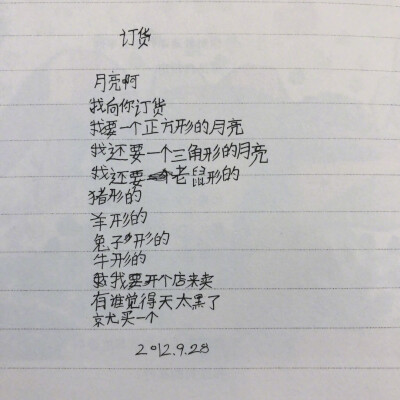 订货
月亮啊
我向你订货
我要一个正方形的月亮
我还要一个三角形的月亮
我还要老鼠形的
猪形的
羊形的
兔子形的
牛形的
我要开个店来卖
有谁觉得天太黑了
京尤买一个
2012.9.28